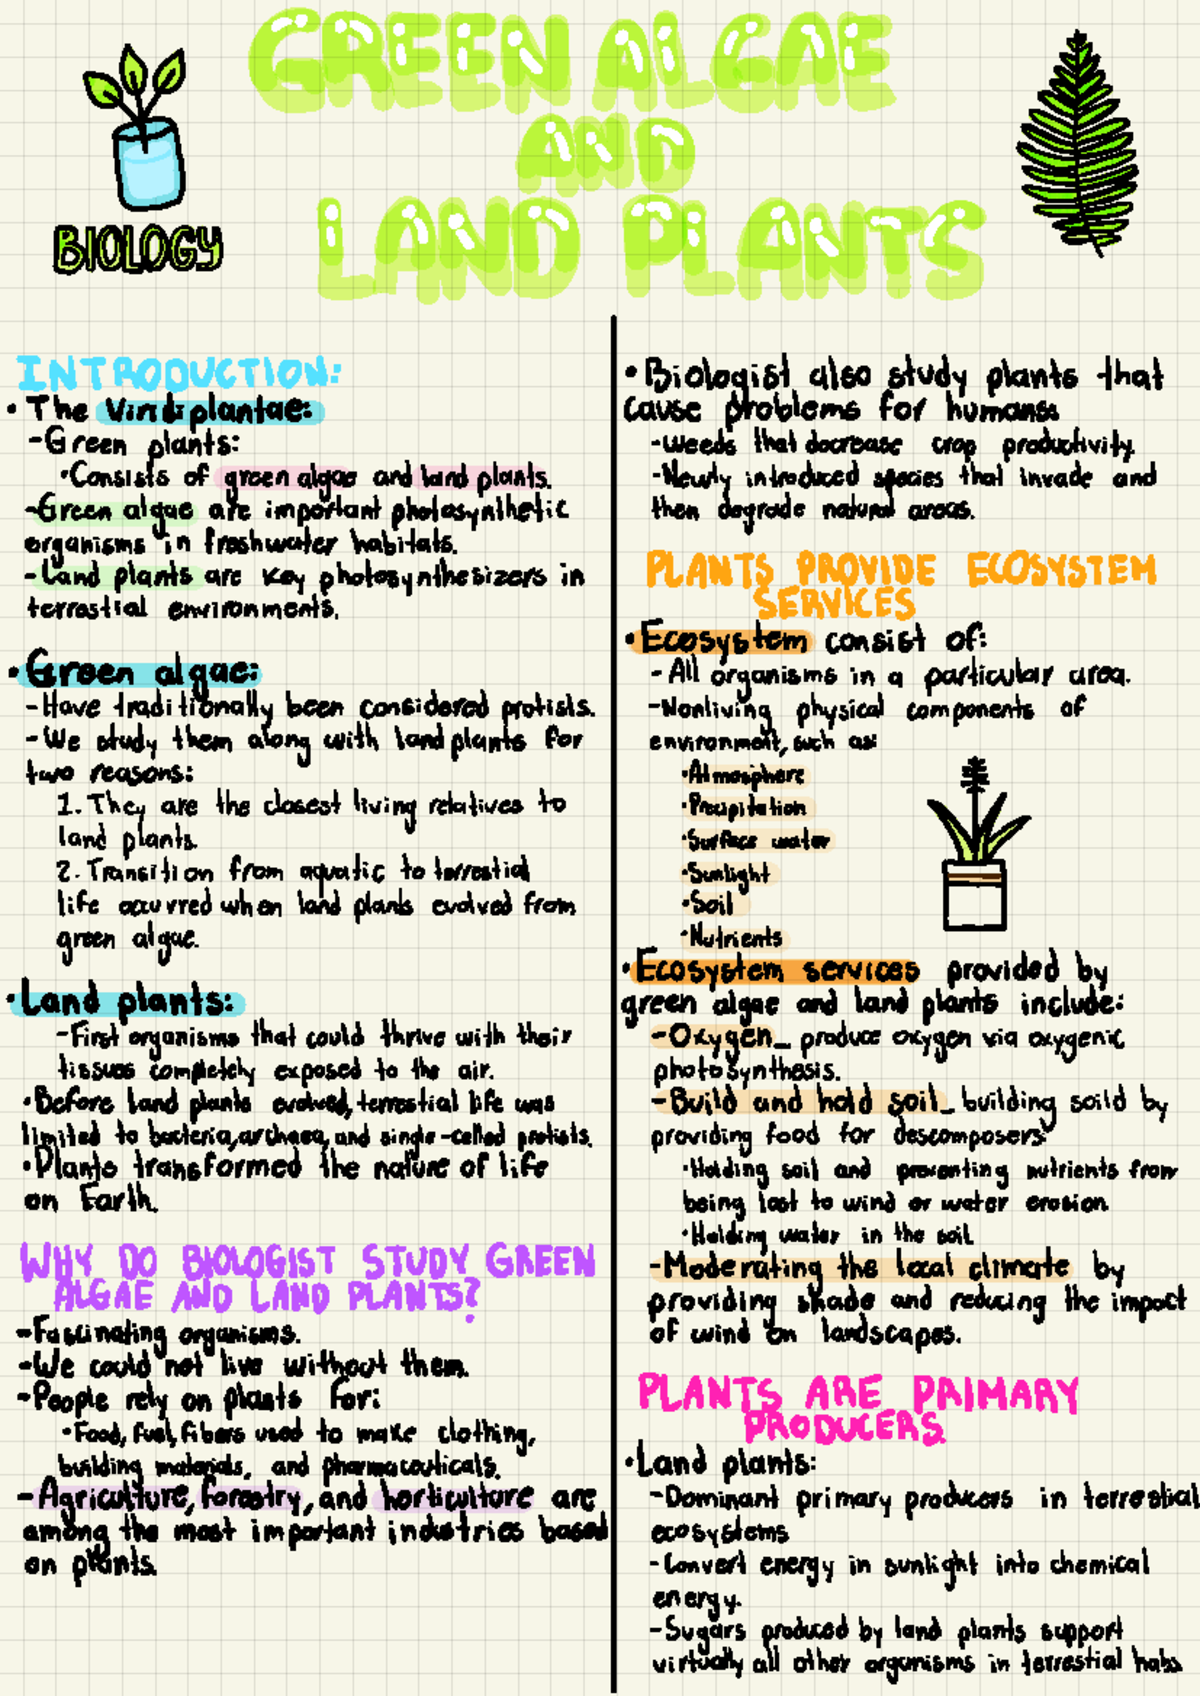 GREEN ALGAE
AND
LAND PLANTS
BIOLOGY
INTRODUCTION:
• The Viridiplantae:
-Green plants:
•Consists of green algae and land plants.
-Green algae are important photosynthetic
organisms in freshwater habitats.
-Land plants are key photosynthesizers in
terrestial environments.
•Green algae:
-Have traditionally been considered protists.
-We study them along with land plants for
two reasons:
1. They are the closest living relatives to
land plants.
2. Transition from aquatic to terrestial
life occurred when land plants evolved from
green algae.
•Land plants:
-First organisms that could thrive with their
tissues completely exposed to the air.
•Before land plants evolved, terrestial life was
limited to bacteria, archaea, and single-celled protists.
•Plants transformed the nature of life
on Earth.
WHY DO BIOLOGIST STUDY GREEN
ALGAE AND LAND PLANTS?
-Fascinating organisms.
-We could not live without them.
-People rely on plants for:
•Food, fuel, fibers used to make clothing,
building materials, and pharmaceuticals.
-Agriculture, forestry, and horticulture are
among the most important industries based
on plants.
•Biologist also study plants that
cause problems for humans:
-Weeds that decrease crop productivity.
-Newly introduced species that invade and
then degrade natural areas.
PLANTS PROVIDE ECOSYSTEM
SERVICES
•Ecosystem consist of:
-All organisms in a particular area.
-Nonliving physical components of
environment, such as:
•Atmosphere
•Precipitation
•Surface water
•Sunlight
•Soil
•Nutrients
•Ecosystem services provided by
green algae and land plants include:
-Oxygen_ produce oxygen via oxygenic
photosynthesis.
-Build and hold soil_ building soild by
providing food for descomposers.
•Holding soil and preventing nutrients from
being lost to wind or water erosion
•Holding water in the soil
-Moderating the local climate by
providing shade and reducing the impact
of wind on landscapes.
PLANTS ARE PRIMARY
PRODUCERS
•Land plants:
-Dominant primary producers in terrestial
ecosystems
-Convert energy in sunlight into chemical
energy.
-Sugars produced by land plants support
virtually all other organisms in terrestial habs